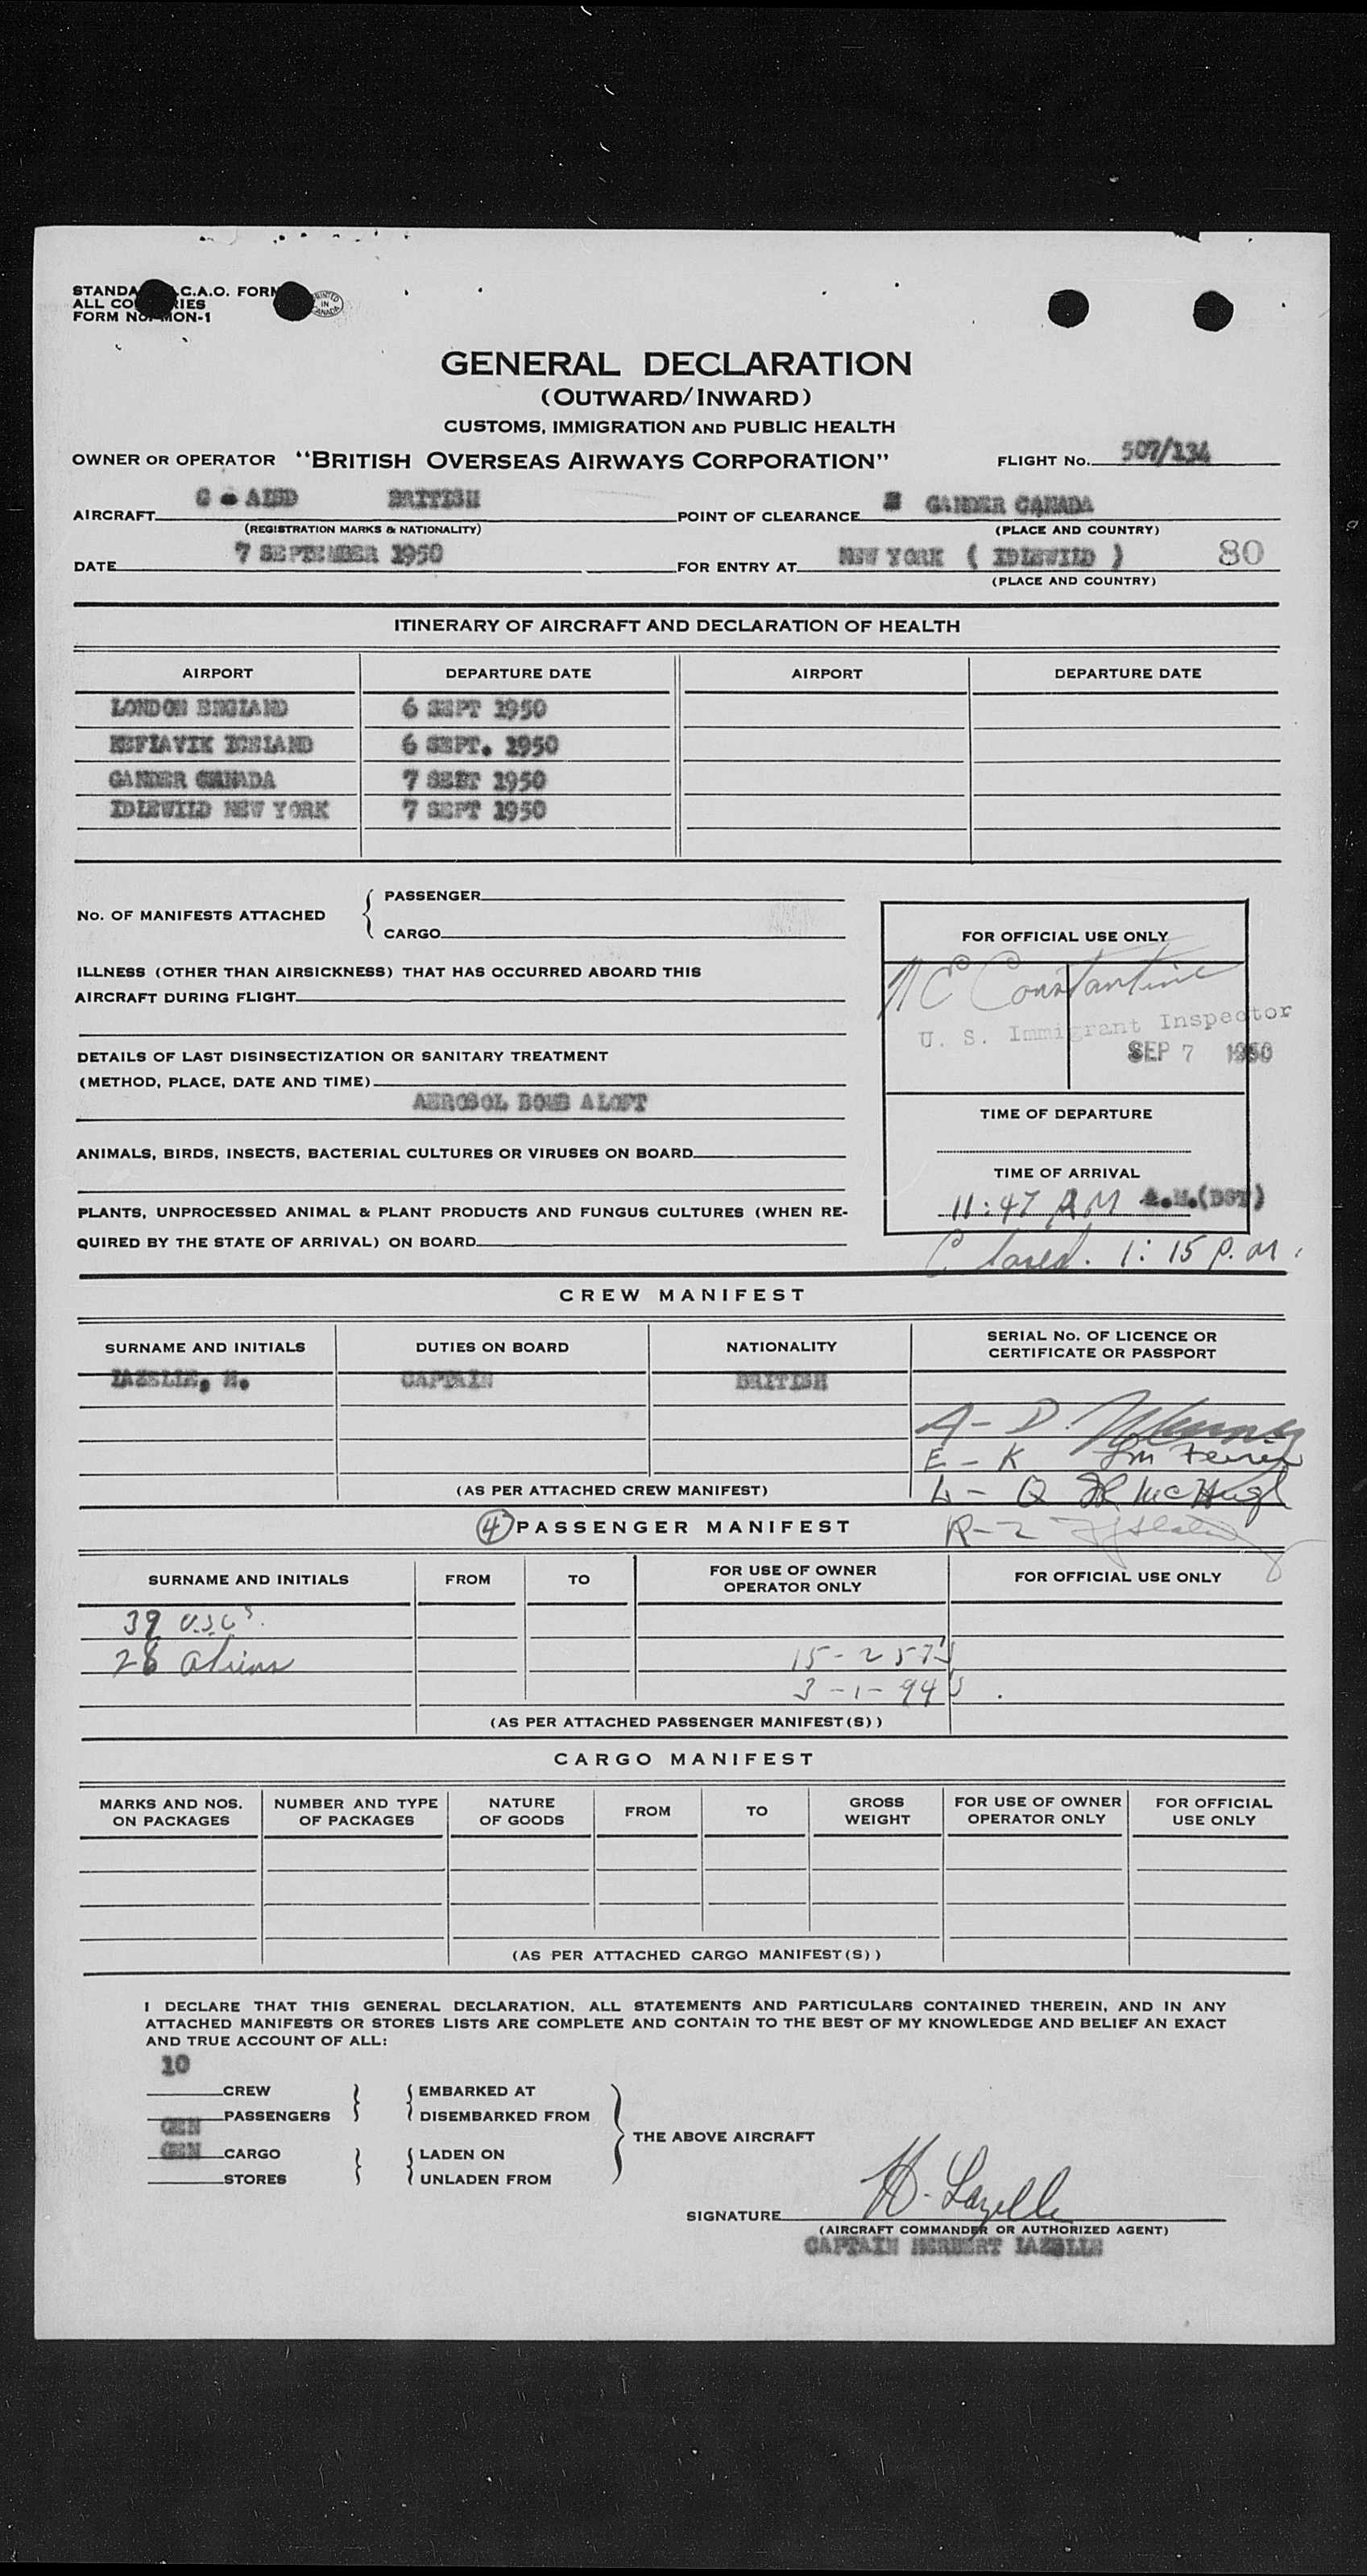 STANDA C.A.O. FORM
ALL CO RIES
FORM NO. MON-1
PRINTED IN CANADA
GENERAL DECLARATION
(OUTWARD/INWARD)
CUSTOMS, IMMIGRATION AND PUBLIC HEALTH
OWNER OR OPERATOR "BRITISH OVERSEAS AIRWAYS CORPORATION" FLIGHT No. 507/134
AIRCRAFT G - ALSD BRITISH POINT OF CLEARANCE GANDER CANADA
(REGISTRATION MARKS & NATIONALITY) (PLACE AND COUNTRY)
DATE 7 SEPTEMBER 1950 FOR ENTRY AT NEW YORK ( IDLEWILD ) 80
(PLACE AND COUNTRY)
ITINERARY OF AIRCRAFT AND DECLARATION OF HEALTH
AIRPORT DEPARTURE DATE AIRPORT DEPARTURE DATE
LONDON ENGLAND 6 SEPT 1950
KEFLAVIK ICELAND 6 SEPT. 1950
GANDER CANADA 7 SEPT 1950
IDLEWILD NEW YORK 7 SEPT 1950
No. OF MANIFESTS ATTACHED { PASSENGER
CARGO
ILLNESS (OTHER THAN AIRSICKNESS) THAT HAS OCCURRED ABOARD THIS
AIRCRAFT DURING FLIGHT
DETAILS OF LAST DISINSECTIZATION OR SANITARY TREATMENT
(METHOD, PLACE, DATE AND TIME)
AEROSOL BOMB ALOFT
ANIMALS, BIRDS, INSECTS, BACTERIAL CULTURES OR VIRUSES ON BOARD
PLANTS, UNPROCESSED ANIMAL & PLANT PRODUCTS AND FUNGUS CULTURES (WHEN RE-
QUIRED BY THE STATE OF ARRIVAL) ON BOARD
FOR OFFICIAL USE ONLY
Constantine
U. S. Immigrant Inspector
SEP 7 1950
TIME OF DEPARTURE
TIME OF ARRIVAL
11:47 AM A.M.(DST)
Closed. 1:15 p.m.
CREW MANIFEST
SURNAME AND INITIALS DUTIES ON BOARD NATIONALITY SERIAL No. OF LICENCE OR
CERTIFICATE OR PASSPORT
LAZELLE, H. CAPTAIN BRITISH
A - D
E - K
L - Q McHugh
(AS PER ATTACHED CREW MANIFEST)
R - Z
(4) PASSENGER MANIFEST
SURNAME AND INITIALS FROM TO FOR USE OF OWNER
OPERATOR ONLY FOR OFFICIAL USE ONLY
39 U.S.C's.
28 aliens 15 - 257's
3 - 1 - 94's.
(AS PER ATTACHED PASSENGER MANIFEST(S))
CARGO MANIFEST
MARKS AND NOS.
ON PACKAGES NUMBER AND TYPE
OF PACKAGES NATURE
OF GOODS FROM TO GROSS
WEIGHT FOR USE OF OWNER
OPERATOR ONLY FOR OFFICIAL
USE ONLY
(AS PER ATTACHED CARGO MANIFEST(S))
I DECLARE THAT THIS GENERAL DECLARATION, ALL STATEMENTS AND PARTICULARS CONTAINED THEREIN, AND IN ANY
ATTACHED MANIFESTS OR STORES LISTS ARE COMPLETE AND CONTAIN TO THE BEST OF MY KNOWLEDGE AND BELIEF AN EXACT
AND TRUE ACCOUNT OF ALL:
10
CREW } { EMBARKED AT
PASSENGERS DISEMBARKED FROM
GEN
THE ABOVE AIRCRAFT
GEN CARGO } { LADEN ON
STORES UNLADEN FROM
SIGNATURE H. Lazelle
(AIRCRAFT COMMANDER OR AUTHORIZED AGENT)
CAPTAIN HERBERT LAZELLE